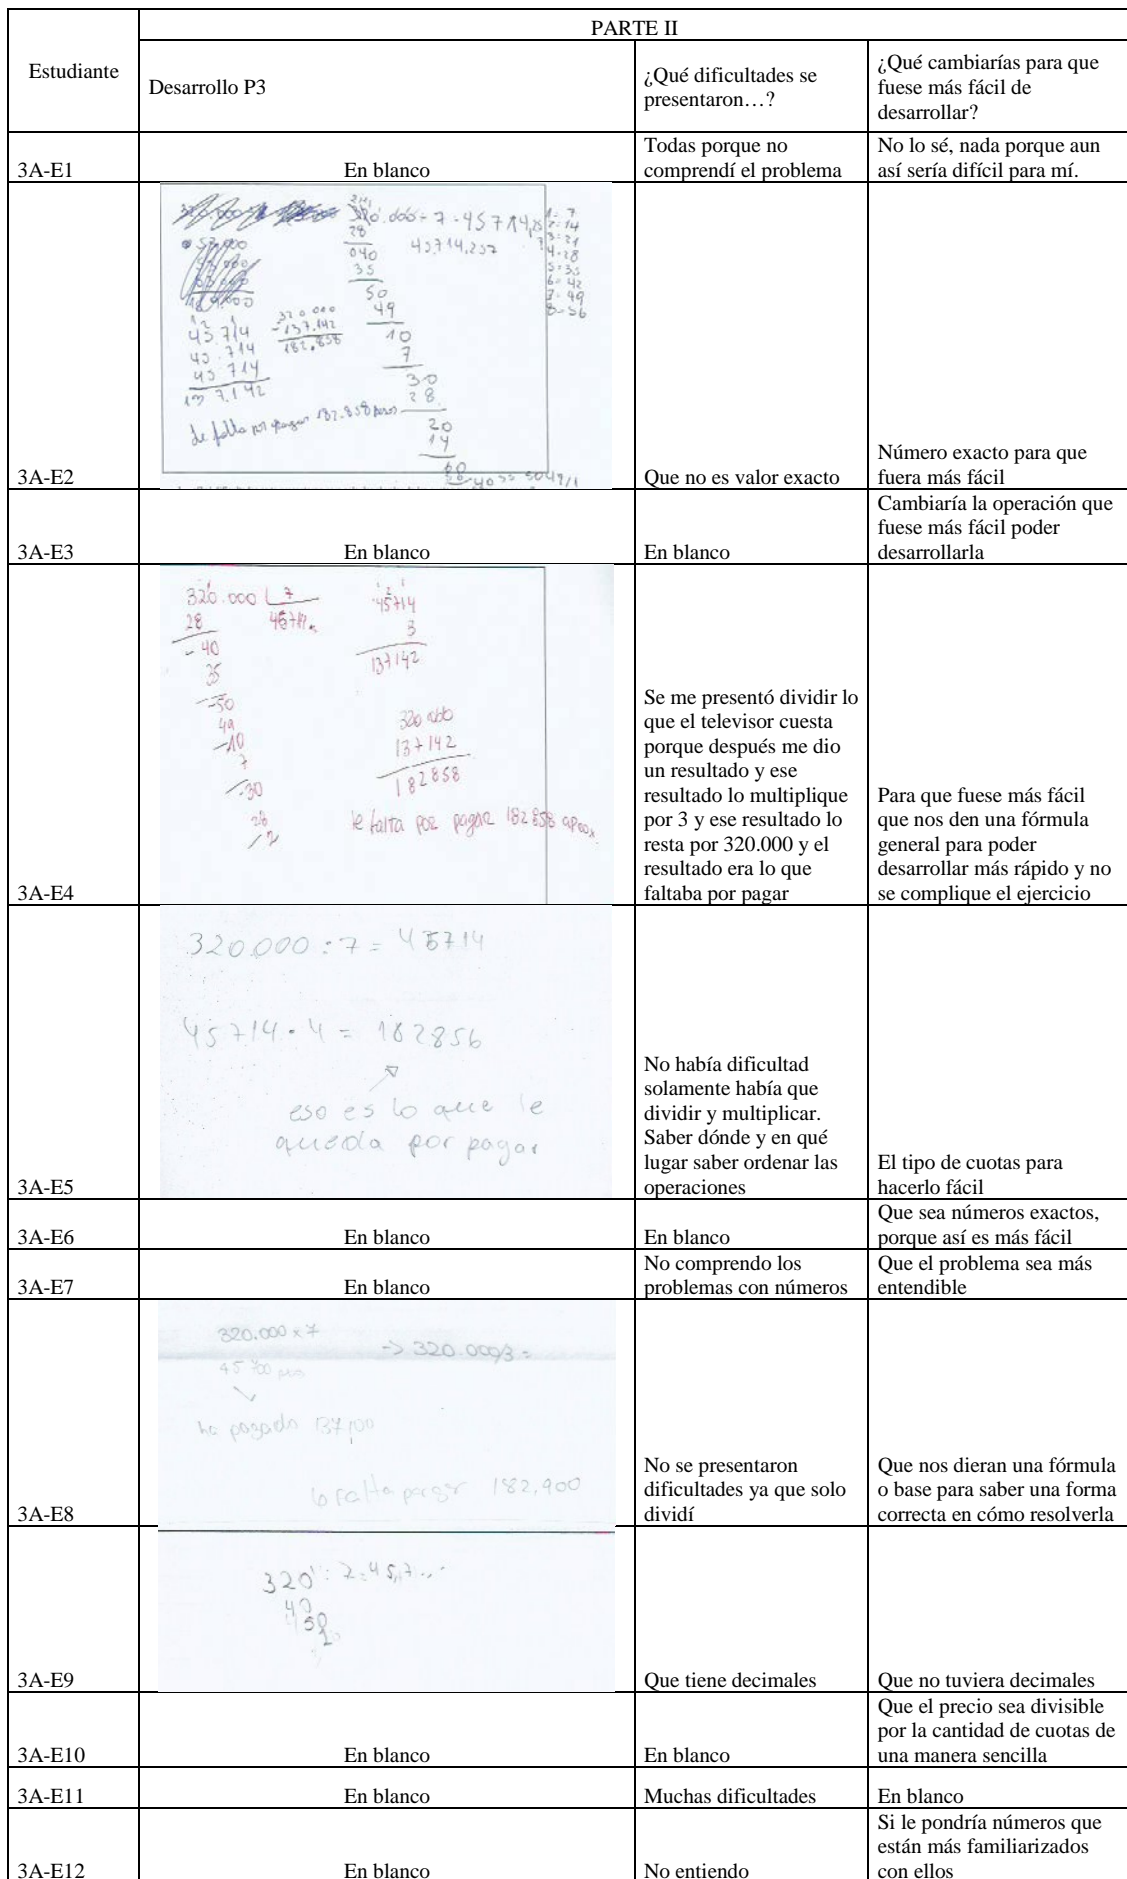 PARTE II
Estudiante
Desarrollo P3
¿Qué dificultades se
presentaron…?
¿Qué cambiarías para que
fuese más fácil de
desarrollar?
3A-E1
En blanco
Todas porque no
comprendí el problema
No lo sé, nada porque aun
así sería difícil para mí.
3A-E2
320.000 ÷ 7 = 45714,25
28
040
35
50
49
10
7
30
28
20
14
60
43.714,257
1= 7
2=14
3=21
4=28
5=35
6=42
7=49
8=56
45.714
45.714
45 714
137.142
320 000
-137.142
182.858
Que no es valor exacto
Número exacto para que
fuera más fácil
3A-E3
En blanco
En blanco
Cambiaría la operación que
fuese más fácil poder
desarrollarla
3A-E4
320.000 7
28
40
35
50
49
10
7
30
28
2
45714
3
137142
320 000
137142
182858
le falta por pagar 182858 aprox.
Se me presentó dividir lo
que el televisor cuesta
porque después me dio
un resultado y ese
resultado lo multiplique
por 3 y ese resultado lo
resta por 320.000 y el
resultado era lo que
faltaba por pagar
Para que fuese más fácil
que nos den una fórmula
general para poder
desarrollar más rápido y no
se complique el ejercicio
3A-E5
320.000 : 7 = 45714
45714 · 4 = 182856
eso es lo que le
queda por pagar
No había dificultad
solamente había que
dividir y multiplicar.
Saber dónde y en qué
lugar saber ordenar las
operaciones
El tipo de cuotas para
hacerlo fácil
3A-E6
En blanco
En blanco
Que sea números exactos,
porque así es más fácil
3A-E7
En blanco
No comprendo los
problemas con números
Que el problema sea más
entendible
3A-E8
320.000 x 7
-> 320.000/3 =
45 700
ha pagado 137,100
lo falta pagar 182,900
No se presentaron
dificultades ya que solo
dividí
Que nos dieran una fórmula
o base para saber una forma
correcta en cómo resolverla
3A-E9
320 : 7 = 45,7...
40
50
Que tiene decimales
Que no tuviera decimales
3A-E10
En blanco
En blanco
Que el precio sea divisible
por la cantidad de cuotas de
una manera sencilla
3A-E11
En blanco
Muchas dificultades
En blanco
3A-E12
En blanco
No entiendo
Si le pondría números que
están más familiarizados
con ellos